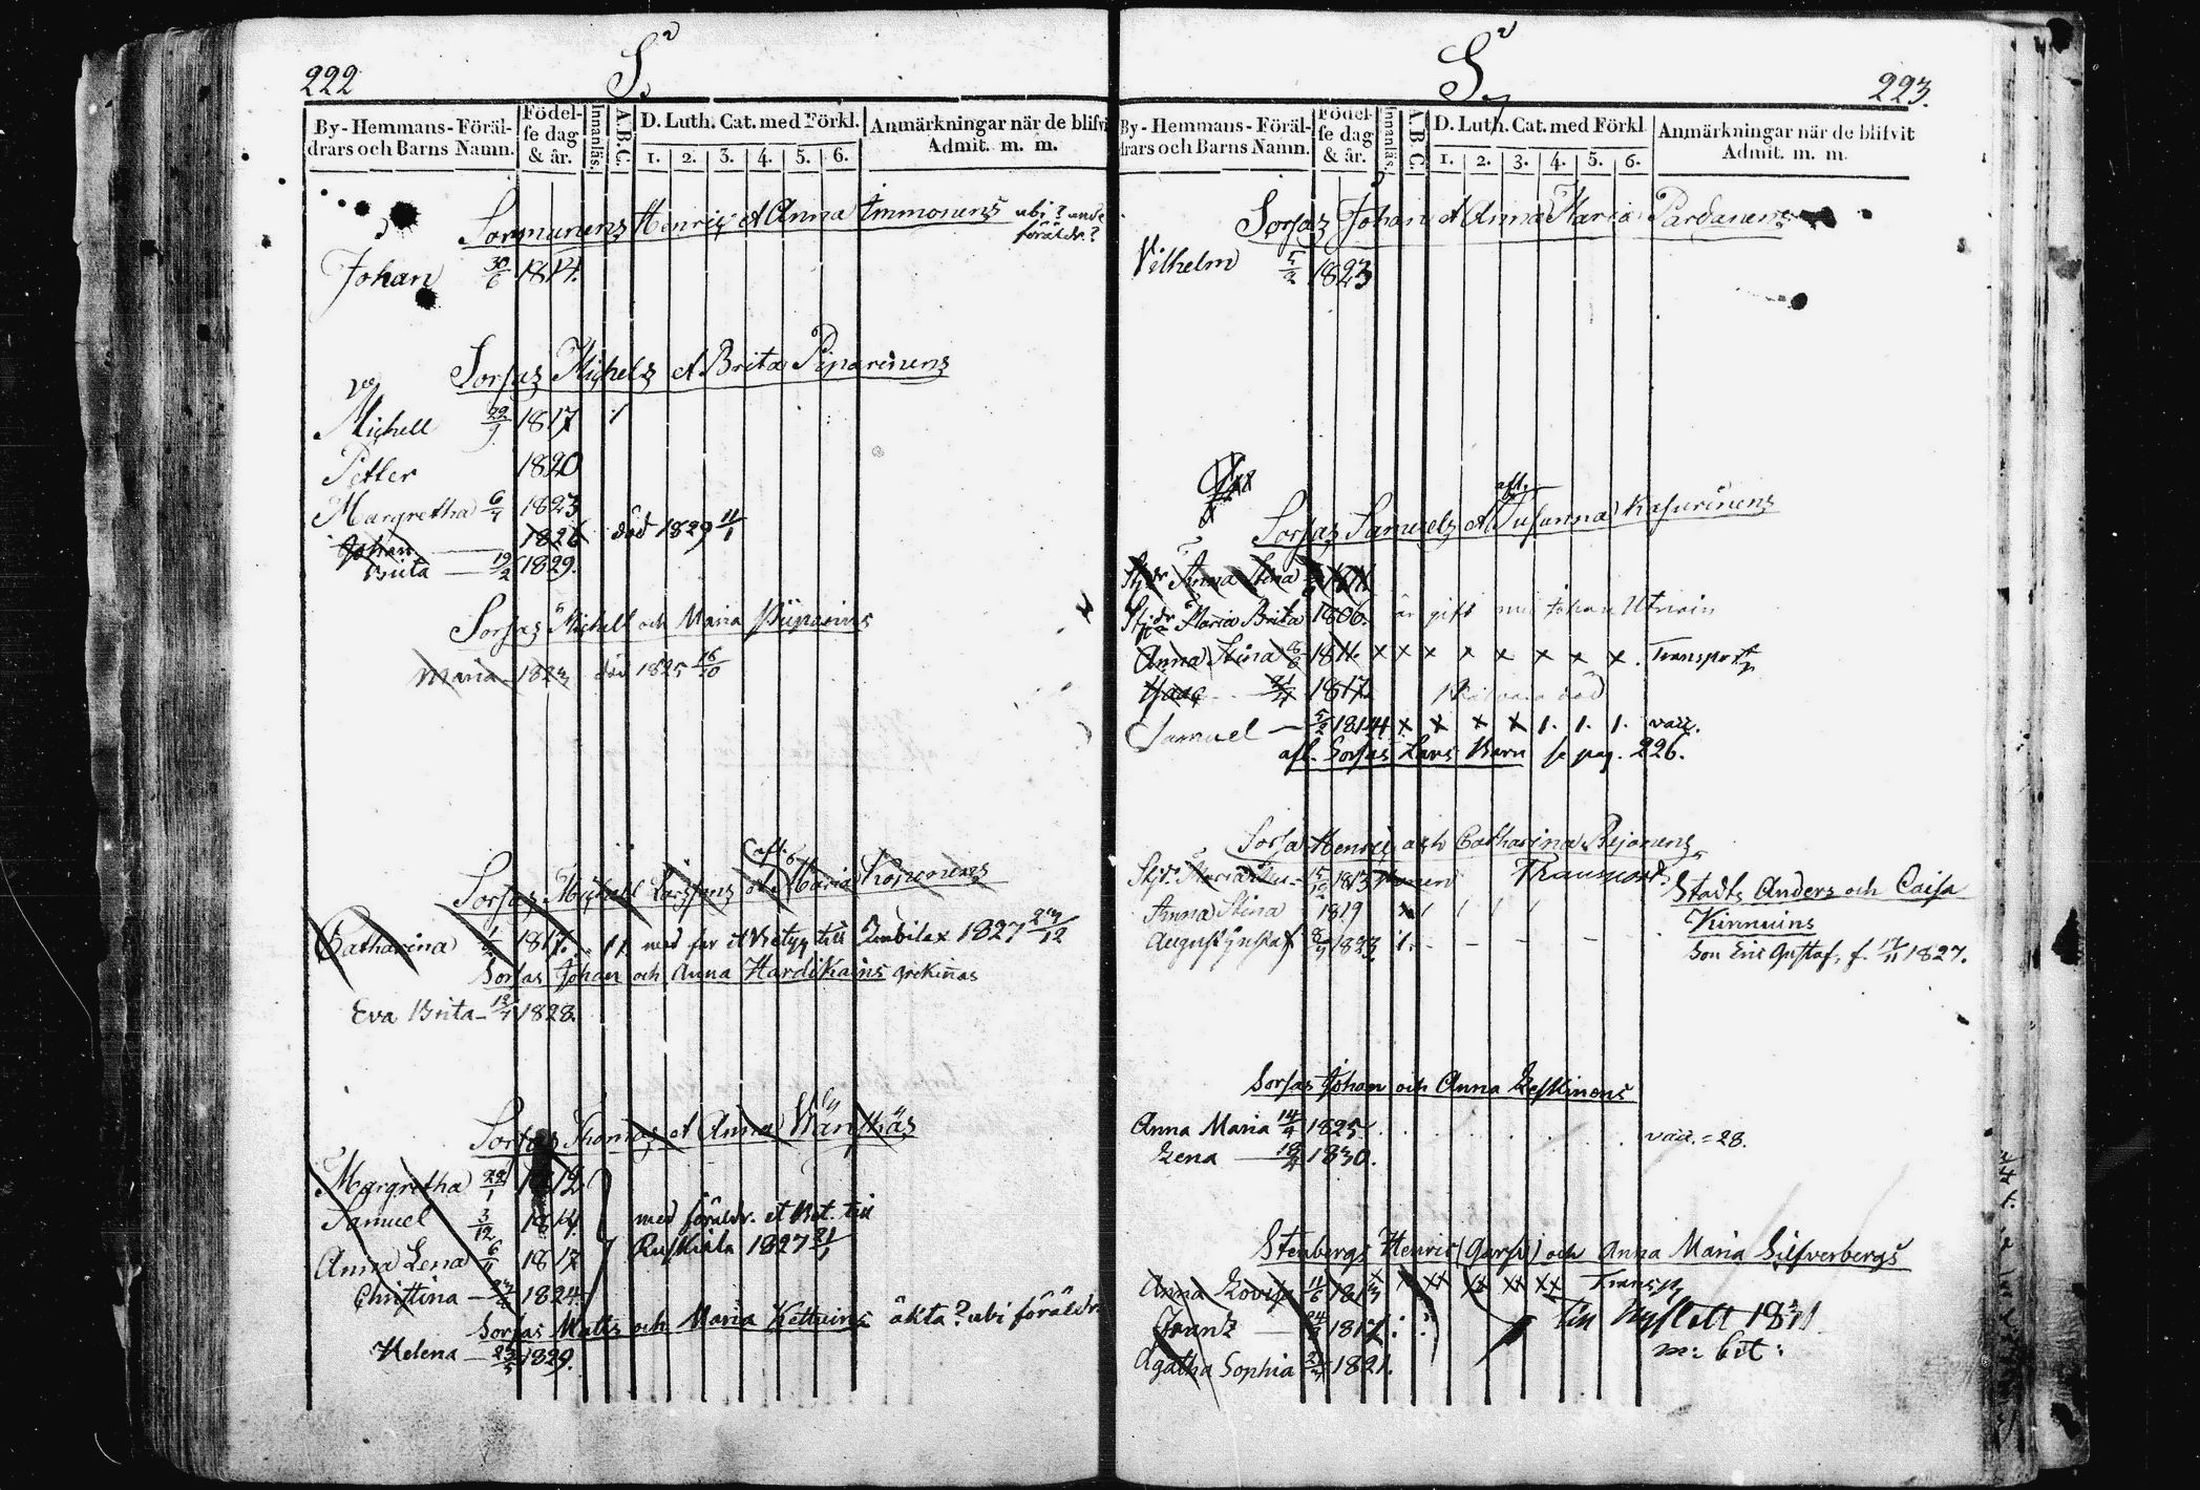 222
S.
By-Hemmans-Föräl-
drars och Barns Namn.
Födel-
se dag
& år.
Innanläs.
A.B.C.
D. Luth. Cat. med Förkl.
1. 2. 3. 4. 5. 6.
Anmärkningar när de blifvi
Admit. m. m.
Sormunens Henric et Anna Immonens ubi? unde
föräldr.?
Johan 30/6 1814.
Sorsas Michels et Brita Piparinens
Michell 1817
Petter 1820
Margretha 1823
Johan 1826 död 1829 11/1
Brita 19/2 1829.
Sorsas Michell och Maria
Maria 1823 död 1825 16/10
Sorsas Michell Larssons afl. et Maria Koponens
Catharina 1817. med far et Betyg till 1827 23/12
Sorsas Johan och Anna Hardikains grekinas
Eva Brita 1828.
Sorsas Thomas et Anna Wänskäs
Margretha 28/1 1812
Samuel 3/12 1814 med föräldr. et Bet. till
Anna Lena 1817 Ruskiala 1827
Christina 1824
Sorsas Matts och Maria Kettuins äkta? ubi föräldr.
Helena 1829.
S.
223.
By-Hemmans-Föräl-
drars och Barns Namn.
Födel-
se dag
& år.
Innanläs.
A.B.C.
D. Luth. Cat. med Förkl.
1. 2. 3. 4. 5. 6.
Anmärkningar när de blifvit
Admit. m. m.
Sorsas Johan et Anna Maria Pardanens
Vilhelm 1823
Sorsas Samuels et afl. Susanna Kasurinens
Anna Stina
Maria Brita 1806. är gift med Johan
Anna Stina 1811. x x x x x x x x. Transport
Isaac 1817 död
Samuel 1814 x x x x 1. 1. 1. vacc.
afl. Sorsas Lars Barn se pag. 226.
Sorsa Henric och Catharina Rejonens
1813 Transport.
Anna Stina 1819
August Gustaf 1823
Stadts Anders och Caisa
Kinnuins
Son Eric Gustaf, f. 1827.
Sorsas Johan och Anna Leskinens
Anna Maria 14/9 1825. vacc. = 28.
Lena 1830.
Stenbergs Henric och Anna Maria Silfverbergs
Anna Lovisa 1813 x x xx xx xx xx Transp.
Frans 1817. Till Nyslott 1831
Agatha Sophia 1821. m: bet: